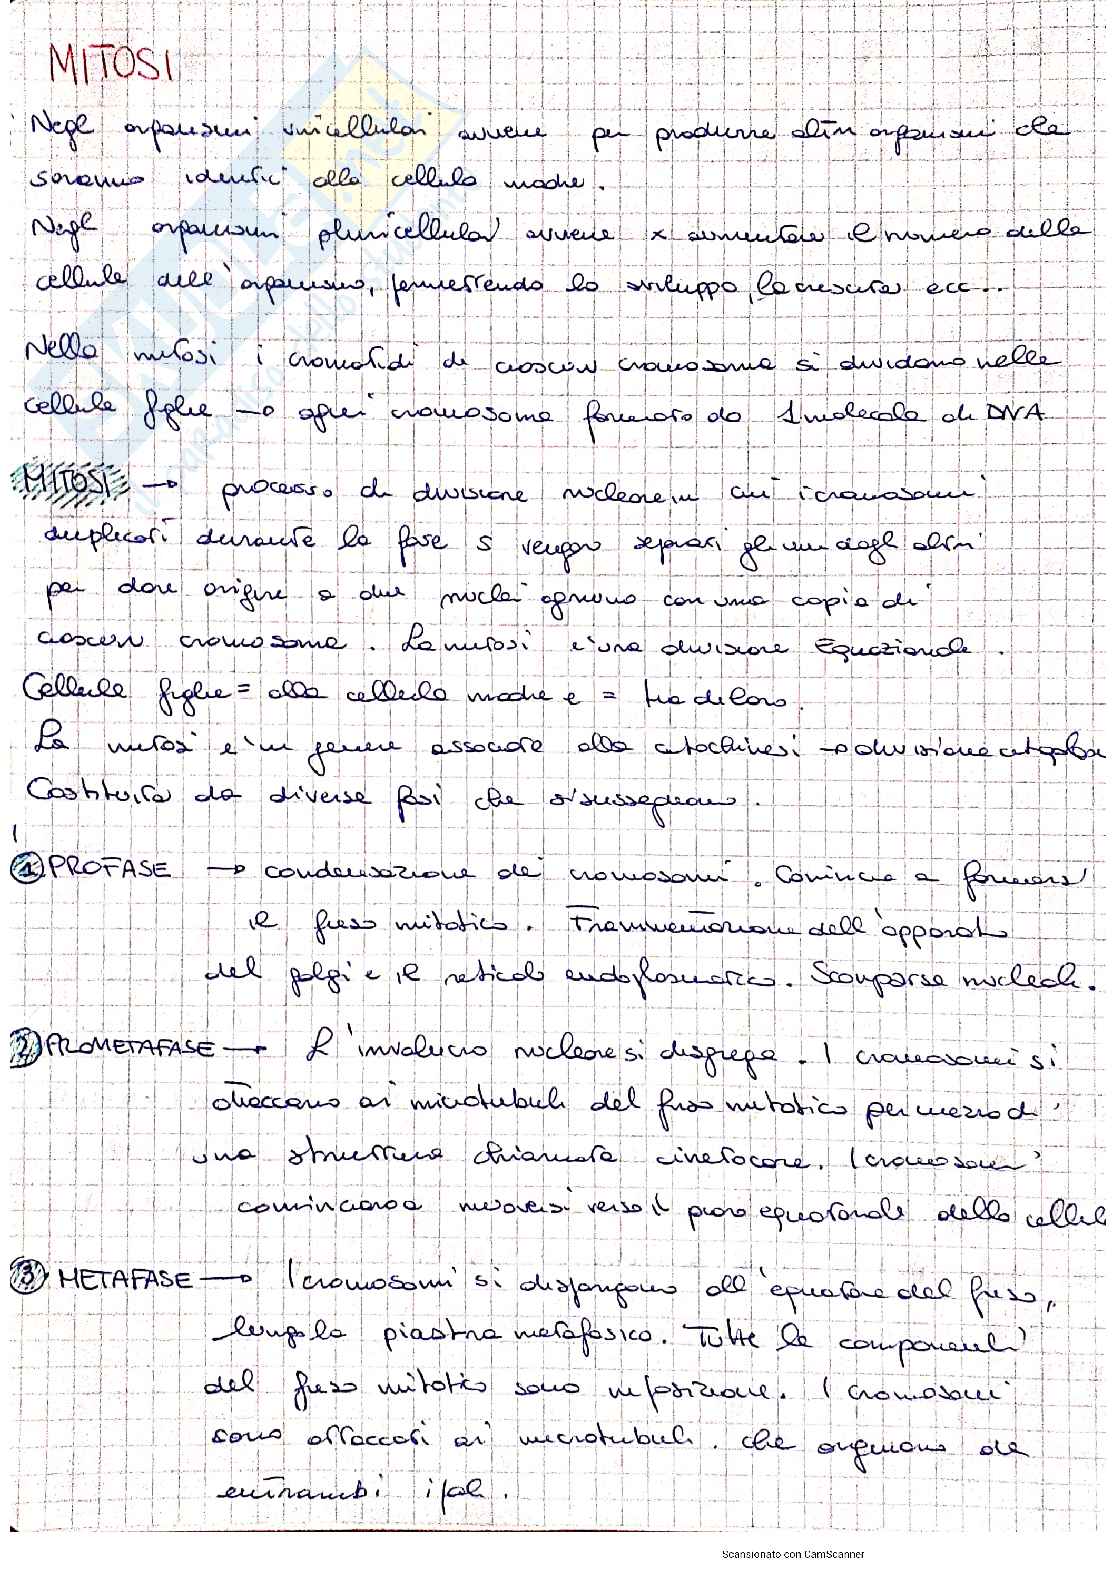 MITOSI
Negli organismi unicellulari avviene per produrre altri organismi che
saranno identici alla cellula madre.
Negli organismi pluricellulari avviene x aumentare il numero delle
cellule dell'organismo, permettendo lo sviluppo, la crescita ecc...
Nella mitosi i cromatidi di ciascun cromosoma si dividono nelle
cellule figlie → ogni cromosoma formato da 1 molecola di DNA
MITOSI → processo di divisione nucleare in cui i cromosomi
duplicati durante la fase S vengono separati gli uni dagli altri
per dare origine a due nuclei ognuno con una copia di
ciascun cromosoma. La mitosi è una divisione Equazionale.
Cellule figlie = alla cellula madre e = tra di loro.
La mitosi è in genere associata alla citochinesi → divisione citoplasma
Costituita da diverse fasi che si susseguono.
1 PROFASE → condensazione dei cromosomi. Comincia a formarsi
il fuso mitotico. Frammentazione dell'apparato
del golgi e il reticolo endoplasmatico. Scomparsa nucleoli.
2) PROMETAFASE → L'involucro nucleare si disgrega. I cromosomi si
attaccano ai microtubuli del fuso mitotico per mezzo di
una struttura chiamata cinetocore. I cromosomi
cominciano a muoversi verso il piano equatoriale della cellula
3) METAFASE → I cromosomi si dispongono all'equatore del fuso,
lungo la piastra metafasica. Tutte le componenti
del fuso mitotico sono in posizione. I cromosomi
sono attaccati ai microtubuli che originano da
entrambi i poli.
Scansionato con CamScanner